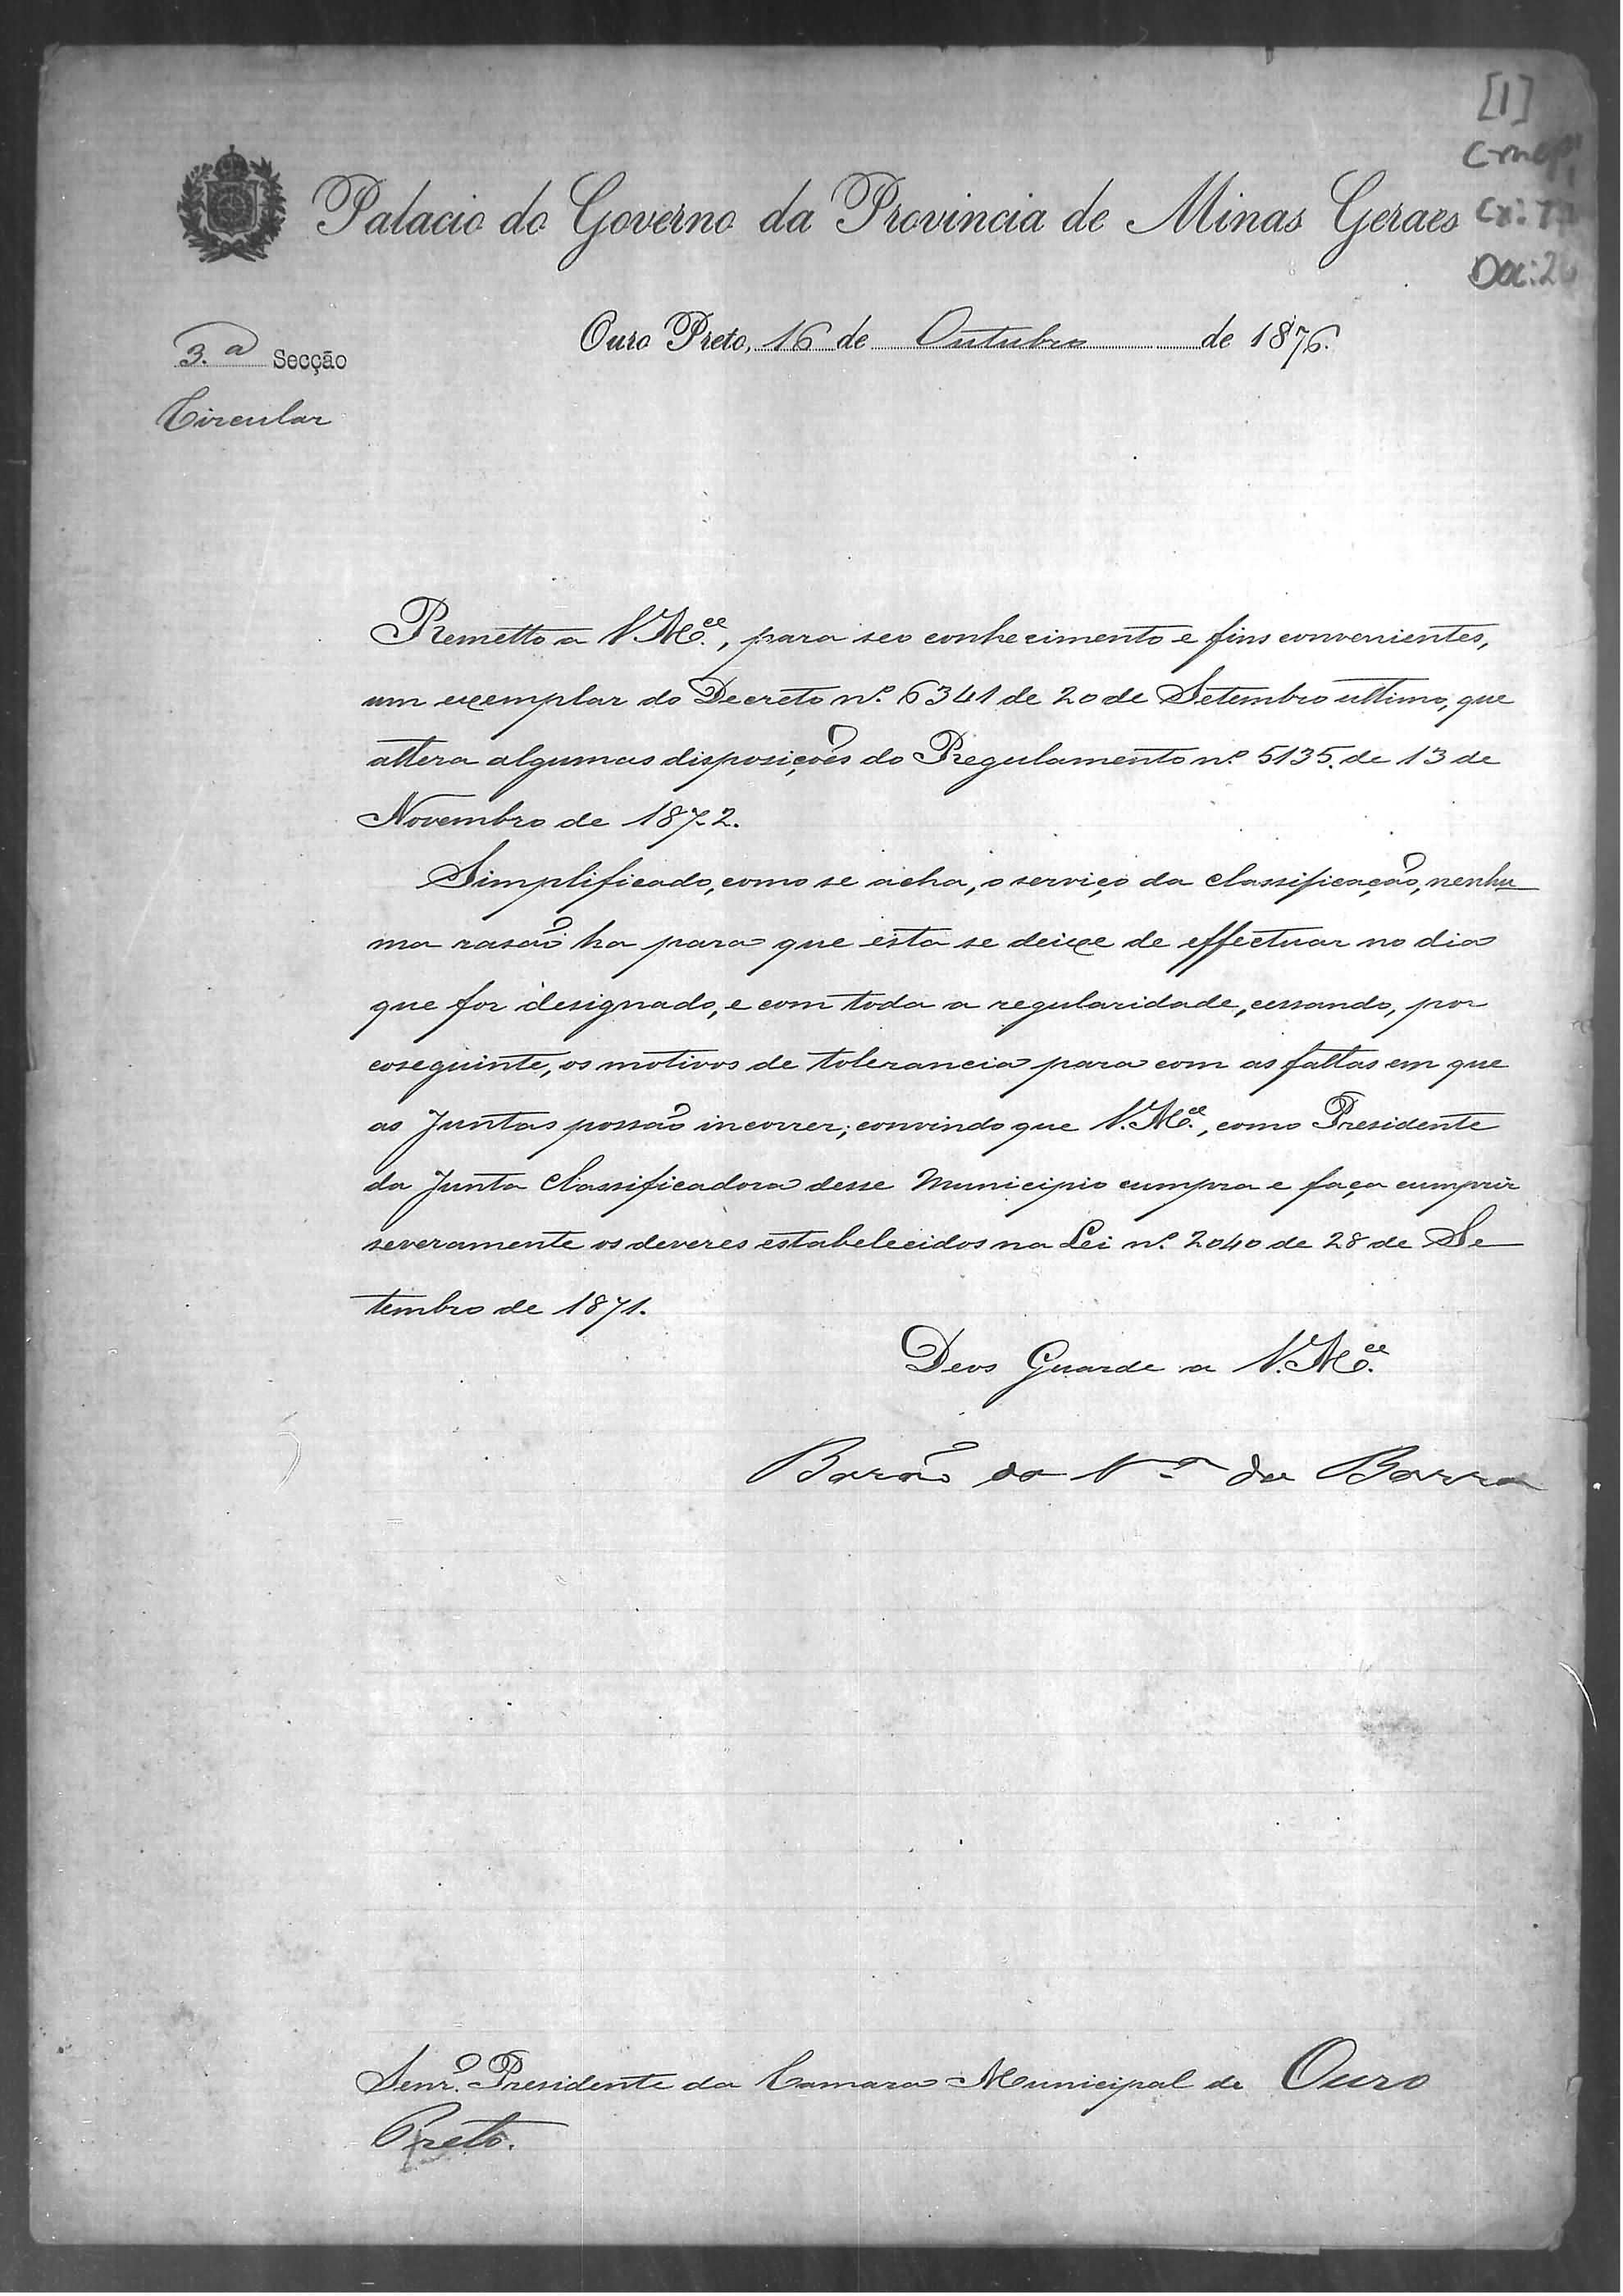 [1]
Cx:
Doc:2
Palacio do Governo da Provincia de Minas Geraes
Ouro Preto, 16 de Outubro de 1876.
3.ª Secção
Circular
Remetto a V. M.ce, para seo conhecimento e fins convenientes,
um exemplar do Decreto n.º 6341 de 20 de Setembro ultimo, que
altera algumas disposições do Regulamento n.º 5135. de 13 de
Novembro de 1872.
Simplificado, como se acha, o serviço da classificação, nenhu
ma rasão ha para que esta se deixe de effectuar no dia
que for designado, e com toda a regularidade, cessando, por
coseguinte, os motivos de tolerancia para com as faltas em que
as Juntas possão incorrer; convindo que V. M.ce, como Presidente
da Junta Classificadora desse Municipio cumpra e faça cumprir
severamente os deveres estabelecidos na Lei n.º 2040 de 28 de Se
tembro de 1871.
Deos Guarde a V. M.ce
Barão da V.ª da Barra
Senr. Presidente da Camara Municipal de Ouro
Preto.